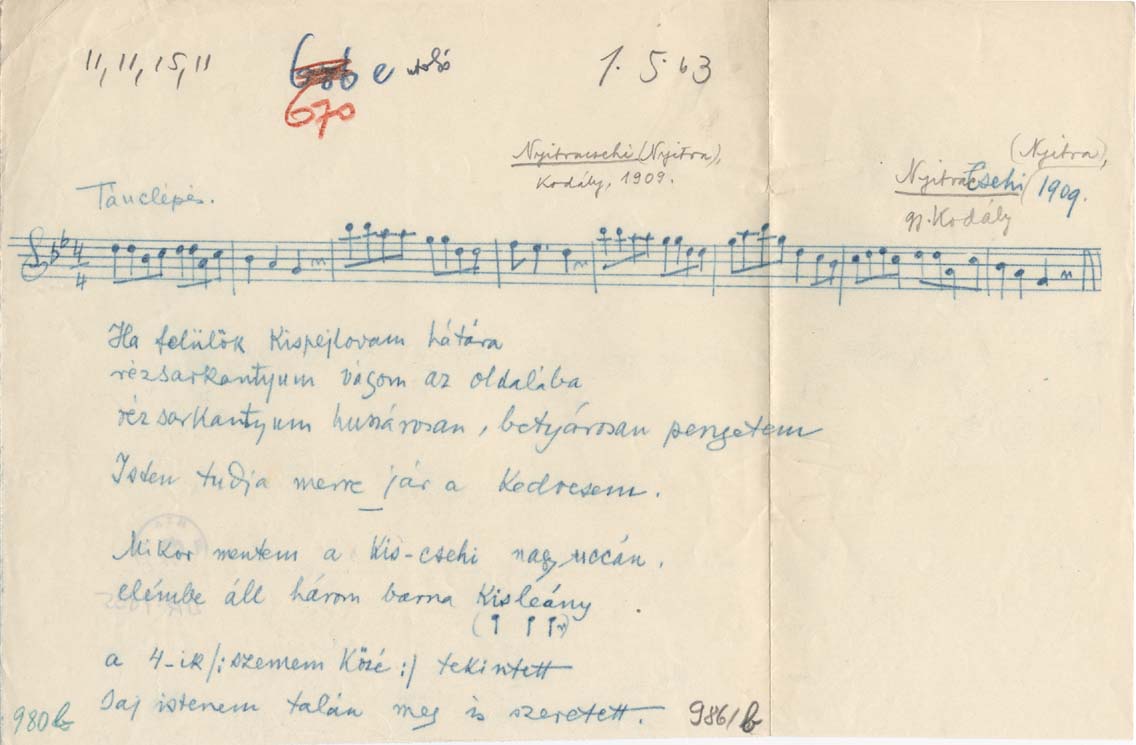 11, 11, 15, 11
e utolsó
1. 5. 63
670
Nyitracsehi (Nyitra),
Kodály, 1909.
(Nyitra),
Nyitracsehi 1909.
gy. Kodály
Tánclépés.
4
4
Ha felülök kispejlovam hátára
rézsarkantyum vágom az oldalába
rézsarkantyum huszárosan, betyárosan pengetem
Isten tudja merre jár a kedvesem.
Mikor mentem a kis-csehi nagy uccán.
elémbe áll három barna kisleány
a 4-ik /: szemem közé :/ tekintett
Jaj istenem talán meg is szeretett.
980 b
986/b